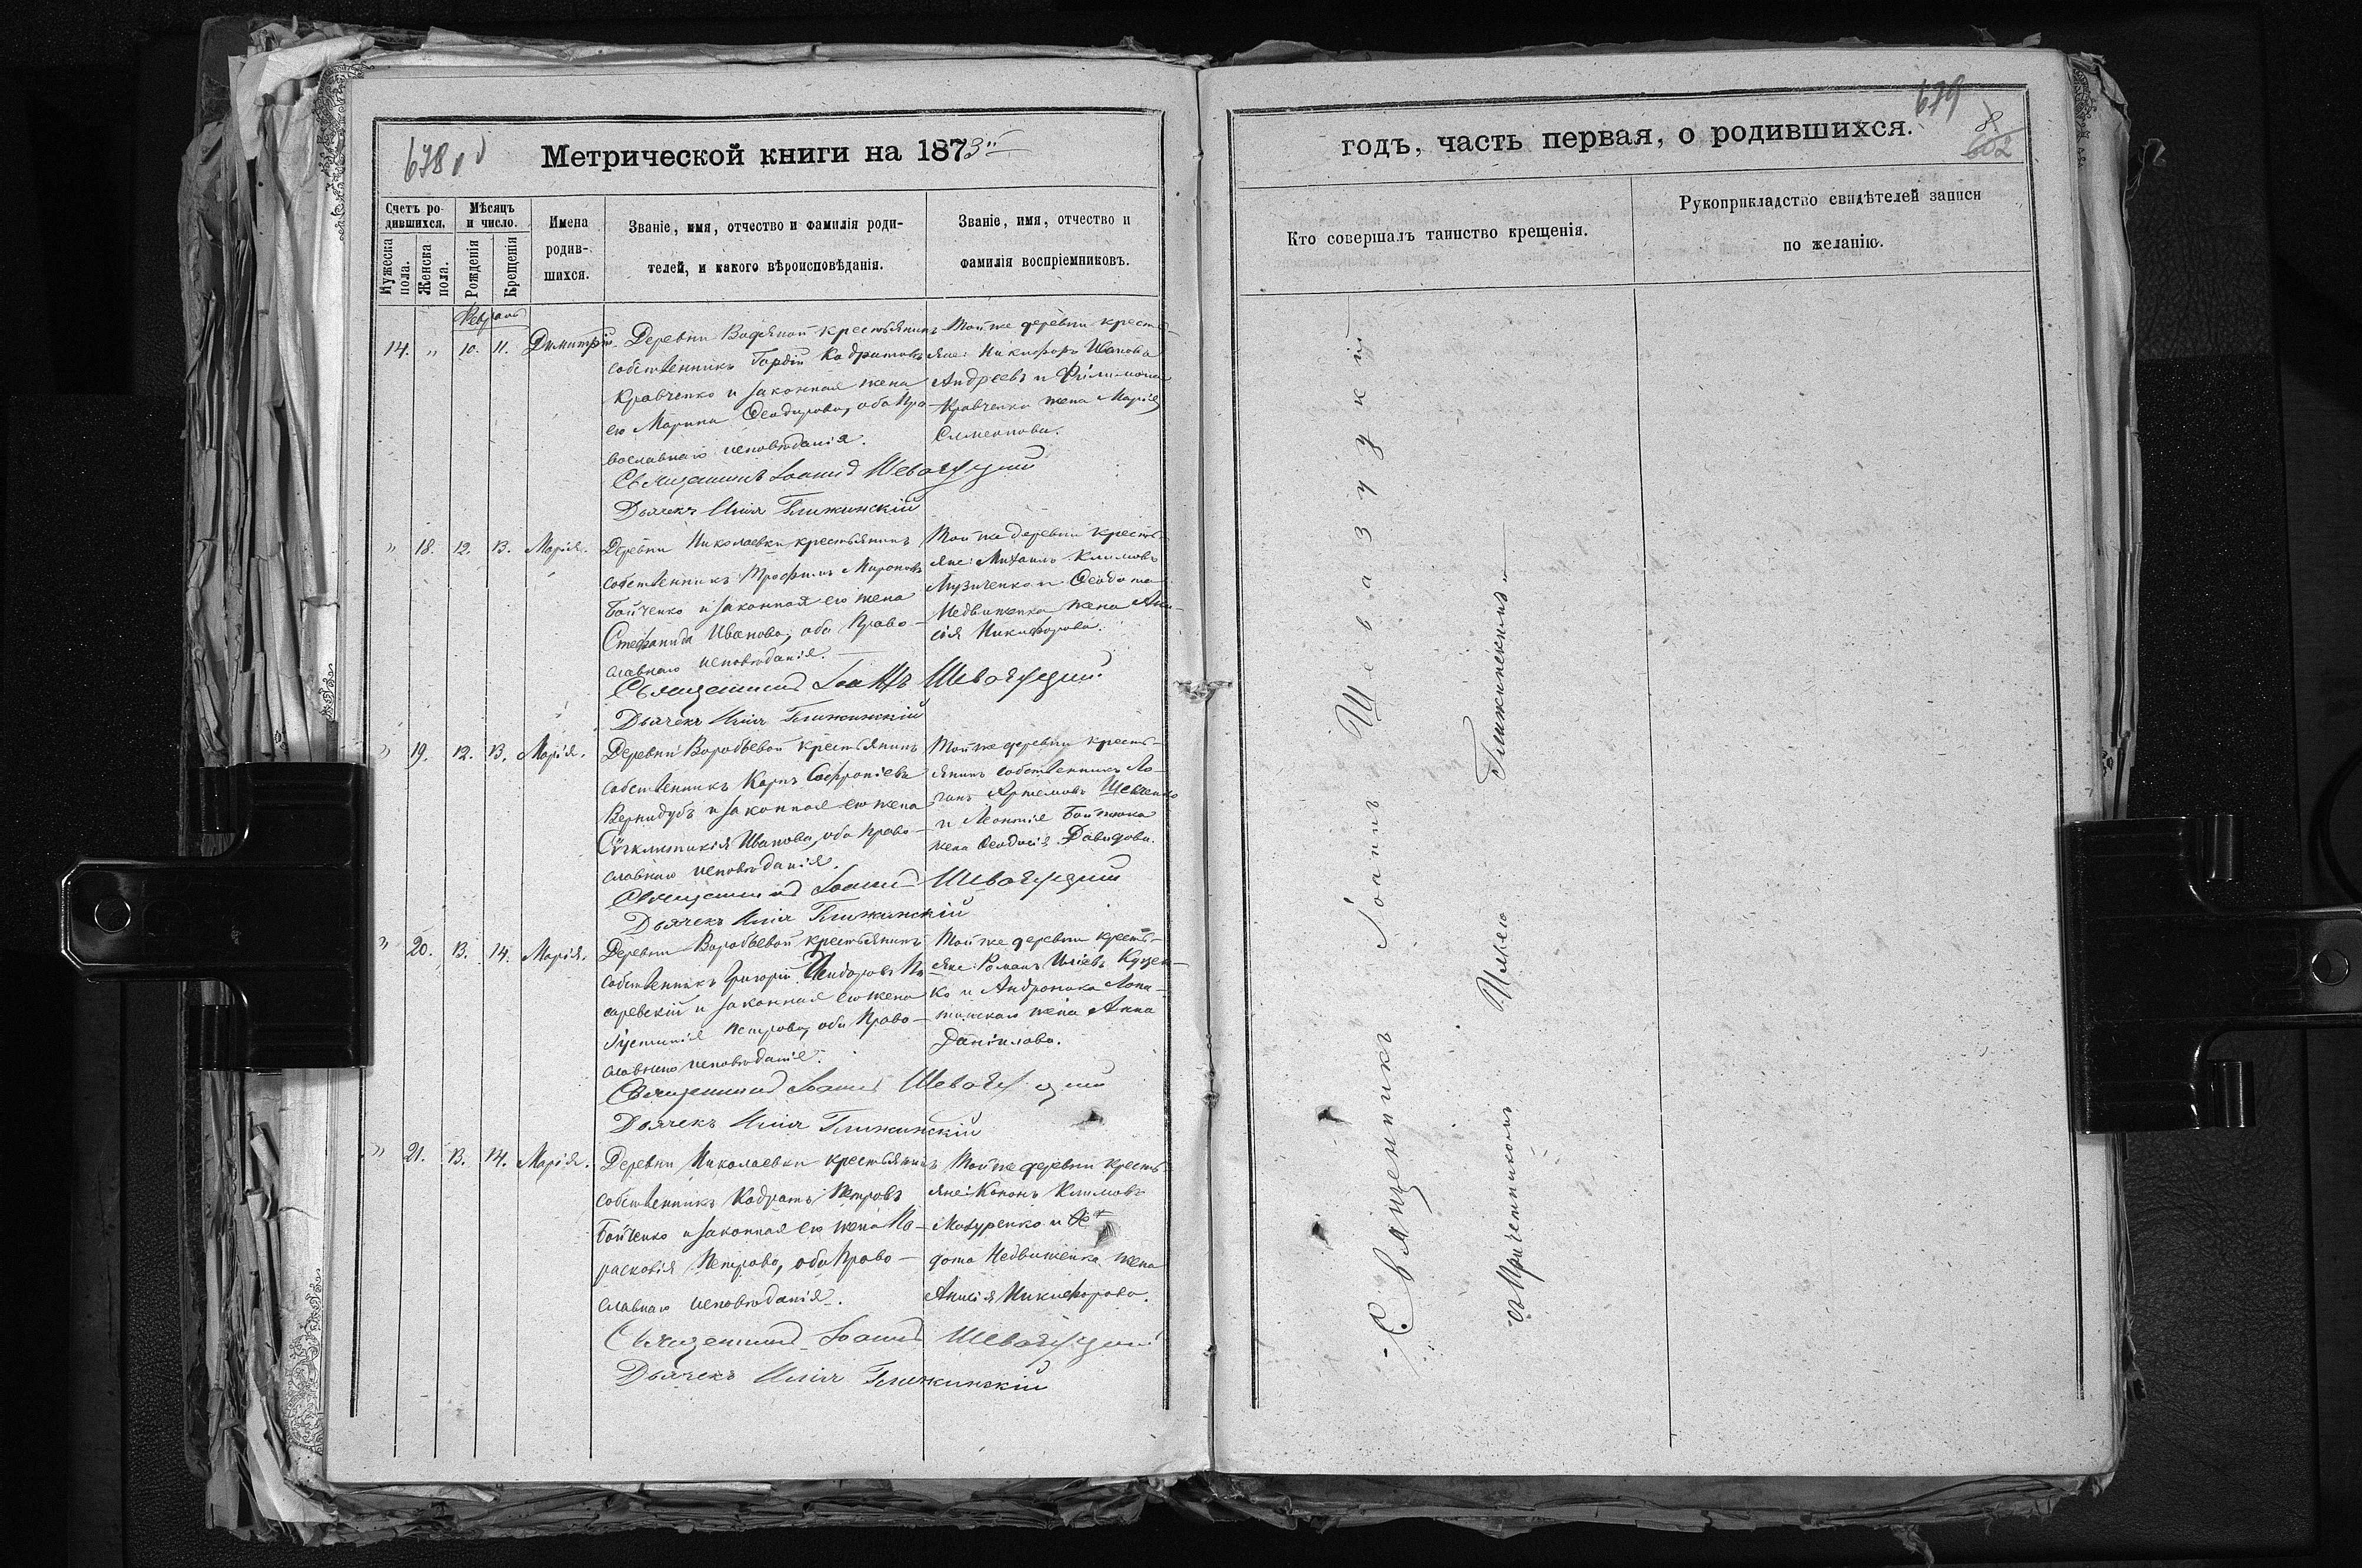 678 об
Метрической книги на 1873й
Счетъ родившихся.
Мѣсяцъ и число.
Мужеска пола.
Женска пола.
Рожденія
Крещенія
Имена родившихся.
Званіе, имя, отчество и фамилія родителей, и какого вѣроисповѣданія.
Званіе, имя, отчество и фамилія воспріемниковъ.
Февраль
14. " 10. 11. Димитрій.
Деревни Водяной крестьянинъ
собственникъ Гордій Кодратовъ
Кравченко и законная жена
его Марина Ѳеодорова, оба Пра-
вославнаго исповѣданія.
Той же деревни кресть-
яне: Никифоръ Ивановъ
Андреевъ и Филимона
Кравченка жена Марія
Симеонова.
Священникъ Іоаннъ Шевазуцкій
Дьячекъ Илія Глижинскій
" 18. 12. 13. Марія.
Деревни Николаевки крестьянинъ
собственникъ Трофимъ Мироновъ
Бойченко и законная его жена
Стефанида Иванова, оба Право-
славнаго исповѣданія.
Той же деревни кресть-
яне: Михаилъ Климовъ
и Ѳеодота
Недвиженка жена Ани-
сія Никифорова.
Священникъ Іоаннъ Шевазуцкій
Дьячекъ Илія Глижинскій
" 19. 12. 13. Марія.
Деревни Воробьевой крестьянинъ
собственникъ Карпъ Софроніевъ
Вернидубъ и законная его жена
Сѵгклитикія Иванова, оба Право-
славнаго исповѣданія.
Той же деревни кресть-
янинъ собственникъ Ло-
гинъ Артемовъ Шевченко
и Леонтія
жена Ѳеодосія Давидова.
Священникъ Іоаннъ Шевазуцкій
Дьячекъ Илія Глижинскій
" 20. 13. 14. Марія.
Деревни Воробьевой крестьянинъ
собственникъ Григорій
и законная его жена
Іустинія Петрова, оба Право-
славнаго исповѣданія.
Той же деревни кресть-
яне: Романъ Иліевъ Куцен-
ко и Андроника Лопа-
тинскаго жена Анна
Даніилова.
Священникъ Іоаннъ Шевазуцкій
Дьячекъ Илія Глижинскій
" 21. 13. 14. Марія.
Деревни Николаевки крестьянинъ
собственникъ Кодратъ Петровъ
Бойченко и законная его жена Па-
расковія Петрова, оба Право-
славнаго исповѣданія.
Той же деревни кресть-
яне: Кононъ Климовъ
Мазуренко и Ѳе-
дота Недвиженка жена
Анисія Никифорова.
Священникъ Іоаннъ Шевазуцкій
Дьячекъ Илія Глижинскій
679
годъ, часть первая, о родившихся.
8.
602
Кто совершалъ таинство крещенія.
Рукоприкладство свидѣтелей записи по желанію.
Священникъ Іоаннъ Шевазуцкій
съ Причетникомъ Иліею Глижинскимъ